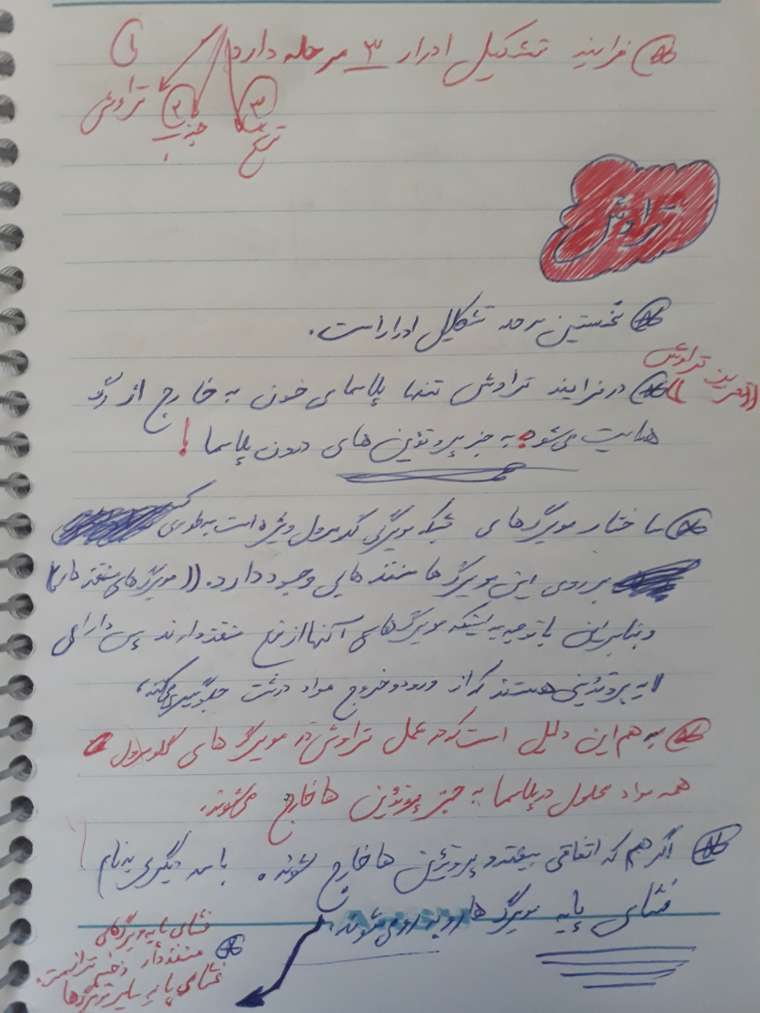 فرایند تشکیل ادرار ۳ مرحله دارد
۱ تراوش
۲ جذب
۳ ترشح
تراوش
نخستین مرحله تشکیل ادرار است.
((تعریف تراوش))
در فرایند تراوش تنها پلاسمای خون به خارج از رگ
هدایت می‌شود به جز پروتئین های درون پلاسما!
ساختار مویرگ‌های شبکه مویرگی گلومرول ویژه است به طوری که
بر روی این مویرگ ها منفذ هایی وجود دارد. ((مویرگ‌های منفذ دار))
و بنابراین با توجه به اینکه مویرگ‌های آنها از نوع منفذ دارند پس دارای
لایه پروتئینی هستند که از ورود و خروج مواد درشت جلوگیری می‌کند،
به همین دلیل است که در عمل تراوش در مویرگ های گلومرول
همه مواد محلول در پلاسما به جز پروتئین ها خارج می‌شوند.
اگر هم که اتفاقی بیفتد و پروتئین ها خارج شوند، با سد دیگری به نام
غشای پایه مویرگ ها روبه رو می‌شوند.
غشای پایه مویرگهای
منفذدار ضخیم تر از
غشای پایه سایر مویرگها